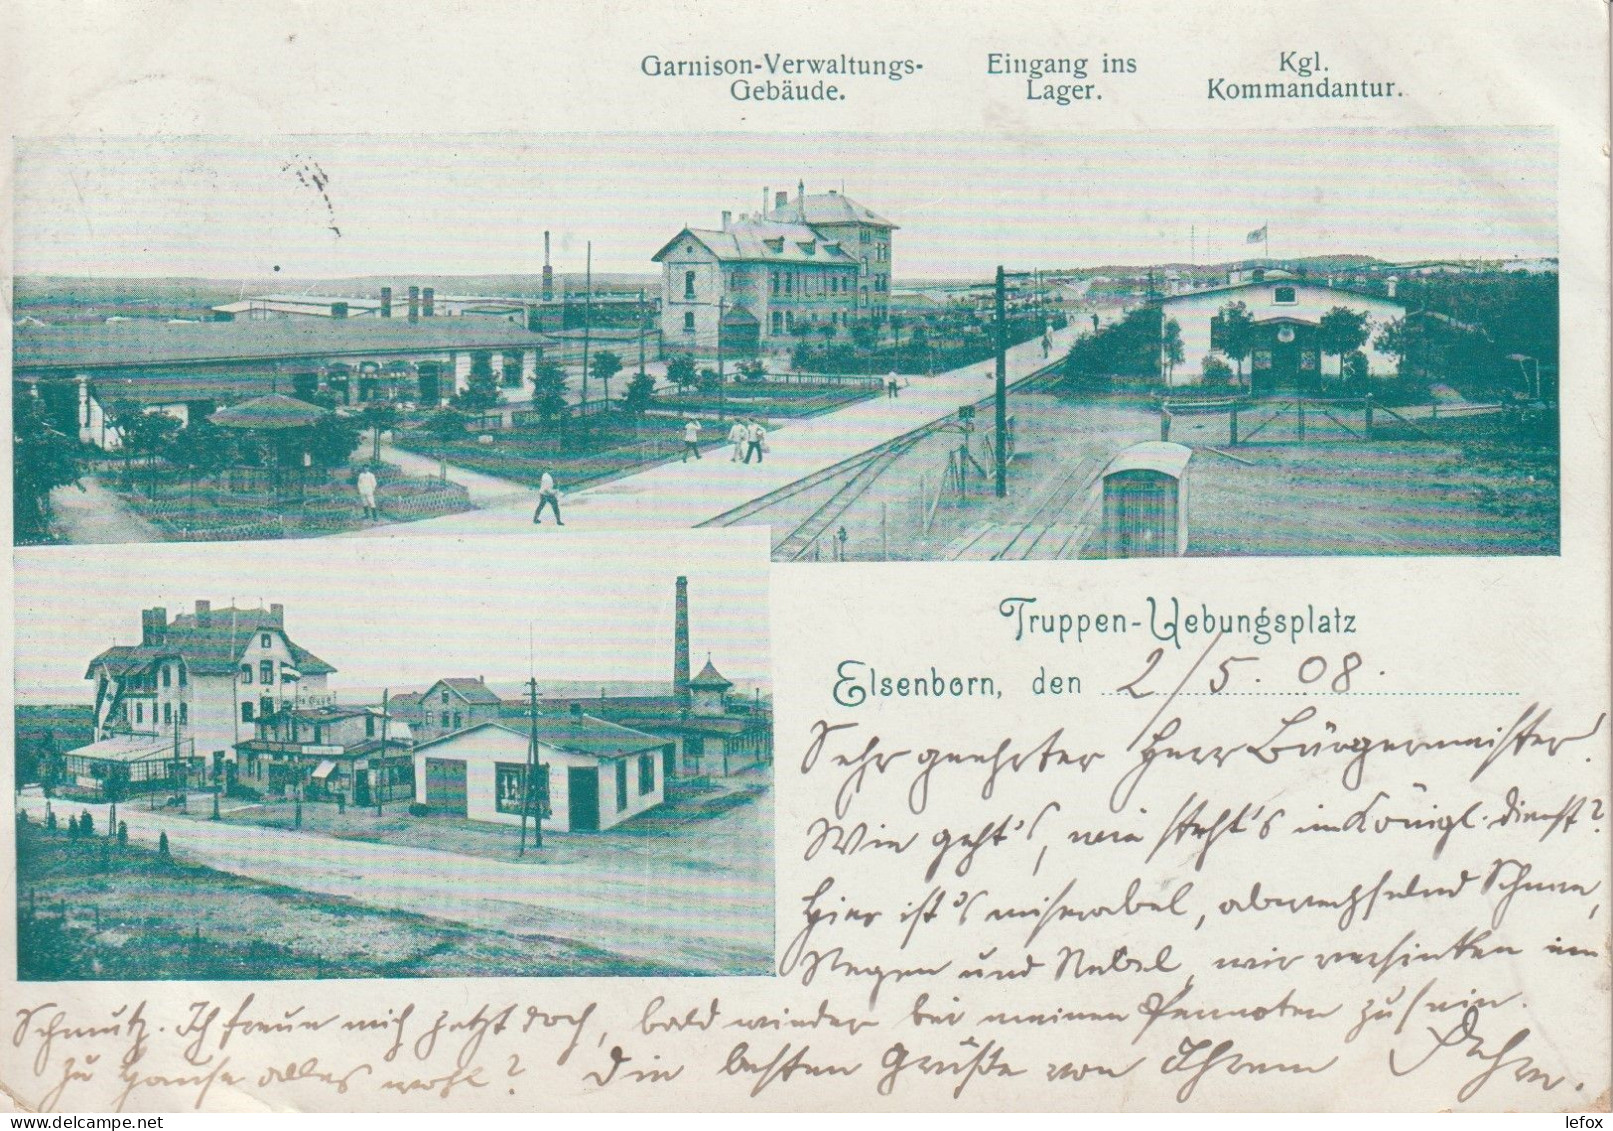 Garnison-Verwaltungs-
Gebäude.
Eingang ins
Lager.
Kgl.
Kommandantur.
Truppen-Uebungsplatz
Elsenborn, den 2/5. 08.
Sehr geehrter Herr Bürgermeister!
Wie geht's, wie steht's im Königl. Dienst?
Hier ist's miserabel, abwechselnd Schnee,
Regen und Nebel, wir versinken im
Schmutz. Ich freue mich jetzt doch, bald wieder bei meinen zu sein.
zu Hause alles wohl? Die besten Grüße von Ihrem
www.delcampe.net
lefox